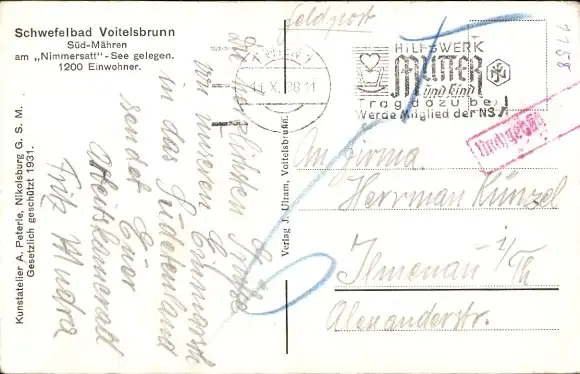 Schwefelbad Voitelsbrunn
Süd-Mähren
am „Nimmersatt"-See gelegen.
1200 Einwohner.
Kunstatelier A. Peterle, Nikolsburg G. S. M.
Gesetzlich geschützt 1931.
Die herzlichsten Grüße
von unseren Einmarsch
in das Sudetenland
sendet Euer
Arbeitskamerad
Fritz Mudra
Verlag J. Ulram, Voitelsbrunn.
Feldpost
HILFSWERK
MUTTER
und Kind
Trag dazu bei
Werde Mitglied der NSV
Nachgebühr
An Firma
Herrman Künzel
Ilmenau i/Th
Alexanderstr.